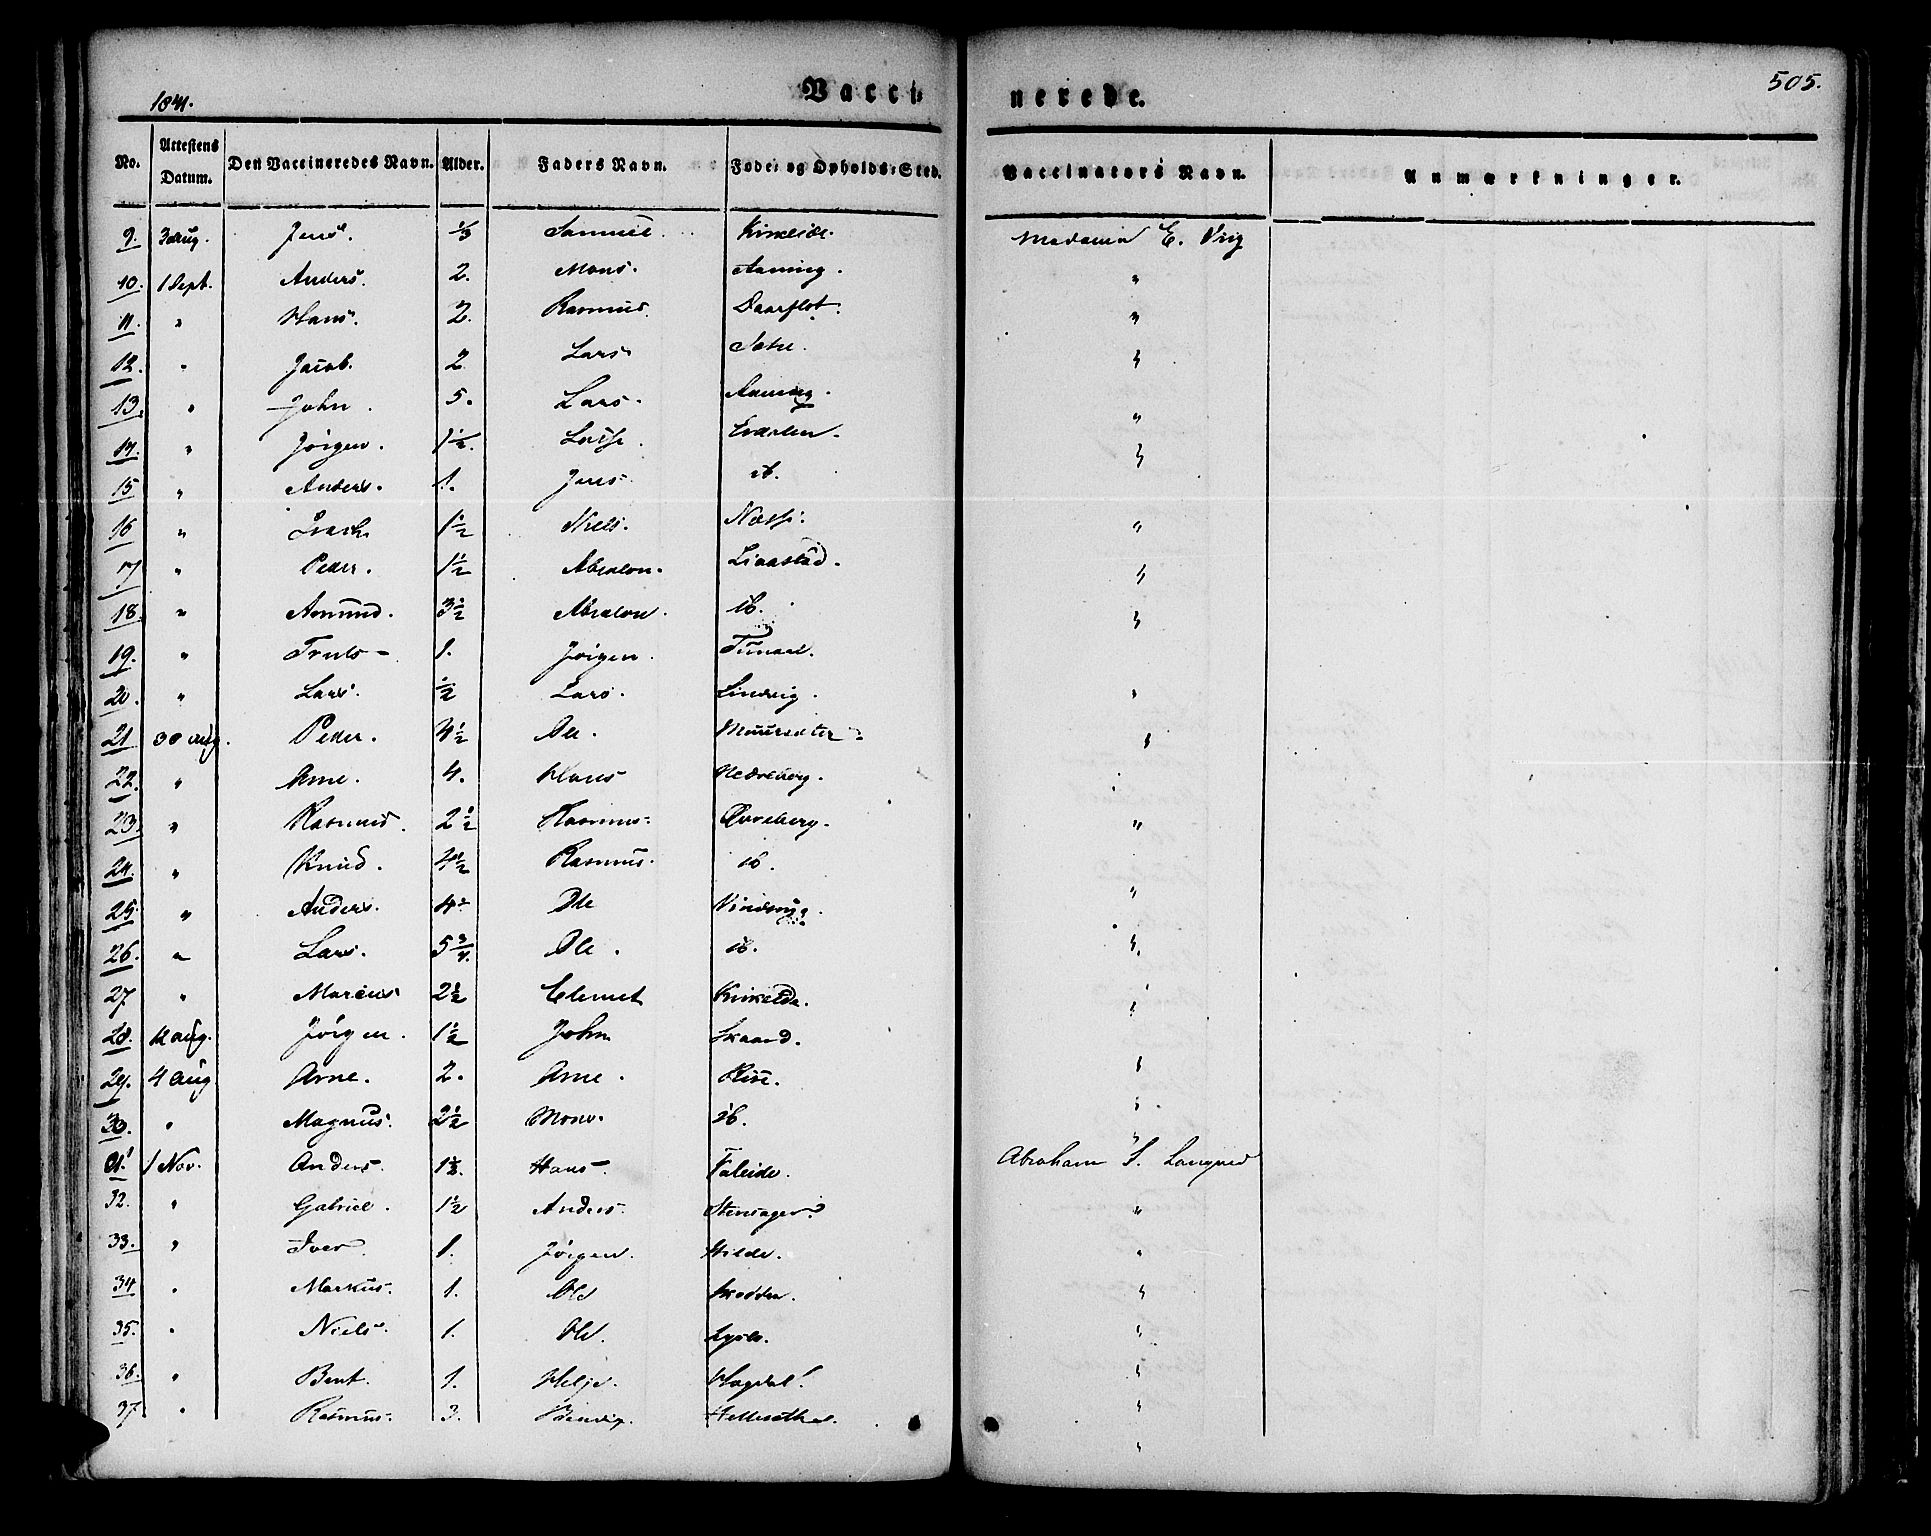 1841. Vaccinerede. 505.
No. Attestens Datum. Den Vaccineredes Navn. Alder. Faders Navn. Føde- og Opholds-Sted. Vaccinators Navn. Anmærkninger.
9. 30 aug. Jens. 1/3 Samuel Kirkeide. Madame E. Vig
10. 1 Sept. Anders. 2. Mons. Aaning. "
11. " Hans. 2. Rasmus Daarflot. "
12. " Jacob. 2 Lars "
13. " John. 5. Lars. Aaning. "
14. " Jörgen. 1 1/2. Lasse. "
15 " Anders. 1. Jens. ib.
16 " 1 1/2 Niels. Nesse. "
17 " Peder. 1 1/2 Absalon. Liaastad. "
18. " Amund. 3 1/2 Absalon. ib. "
19. " Truls 1. Jörgen. Tunold.
20. " Lars. 1/2 Lars. Lindvig. "
21 30 aug. Peder. 4 1/2 Ole. Muursæter "
22. " Arne. 4. Hans Nedreberg. "
23. " Rasmus. 2 1/2 Rasmus Øvreberg. "
24. " Knud. 4 1/2 Rasmus. ib.
25. " Anders. 4 Ole Vindsnyg. "
26. " Lars. 5 3/4. Ole. ib. "
27 " Marcus 2 1/2 Clemet Kirkeide. "
28. 12 aug. Jörgen. 1 1/2 John Skaard.
29. 4 aug Arne. 2. Arne. Rise. "
30. " Magnus. 2 1/2 Mons. ib. "
31. 1 Nov. Anders. 1 1/2. Hans Faleide. Abraham S. Langved
32. " Gabriel. 1 1/2 Anders. Stensager. "
33. " Iver. 1. Jörgen. Hilde. "
34 " Markus. 1. Ole Skodden. "
35. " Niels. 1. Ole "
36. " Bent. 1. Helje. Hagdal. "
37 " Rasmus. 3. Hellesethe. "
"